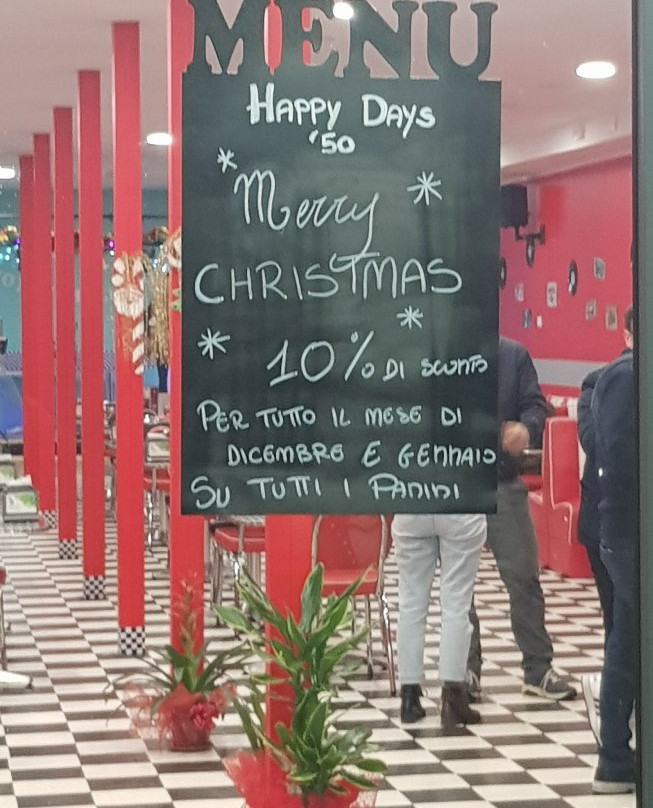 MENU
HAPPY DAYS
'50
* Merry *
CHRISTMAS
* 10% DI SCONTO *
PER TUTTO IL MESE DI
DICEMBRE E GENNAIO
SU TUTTI I PANINI